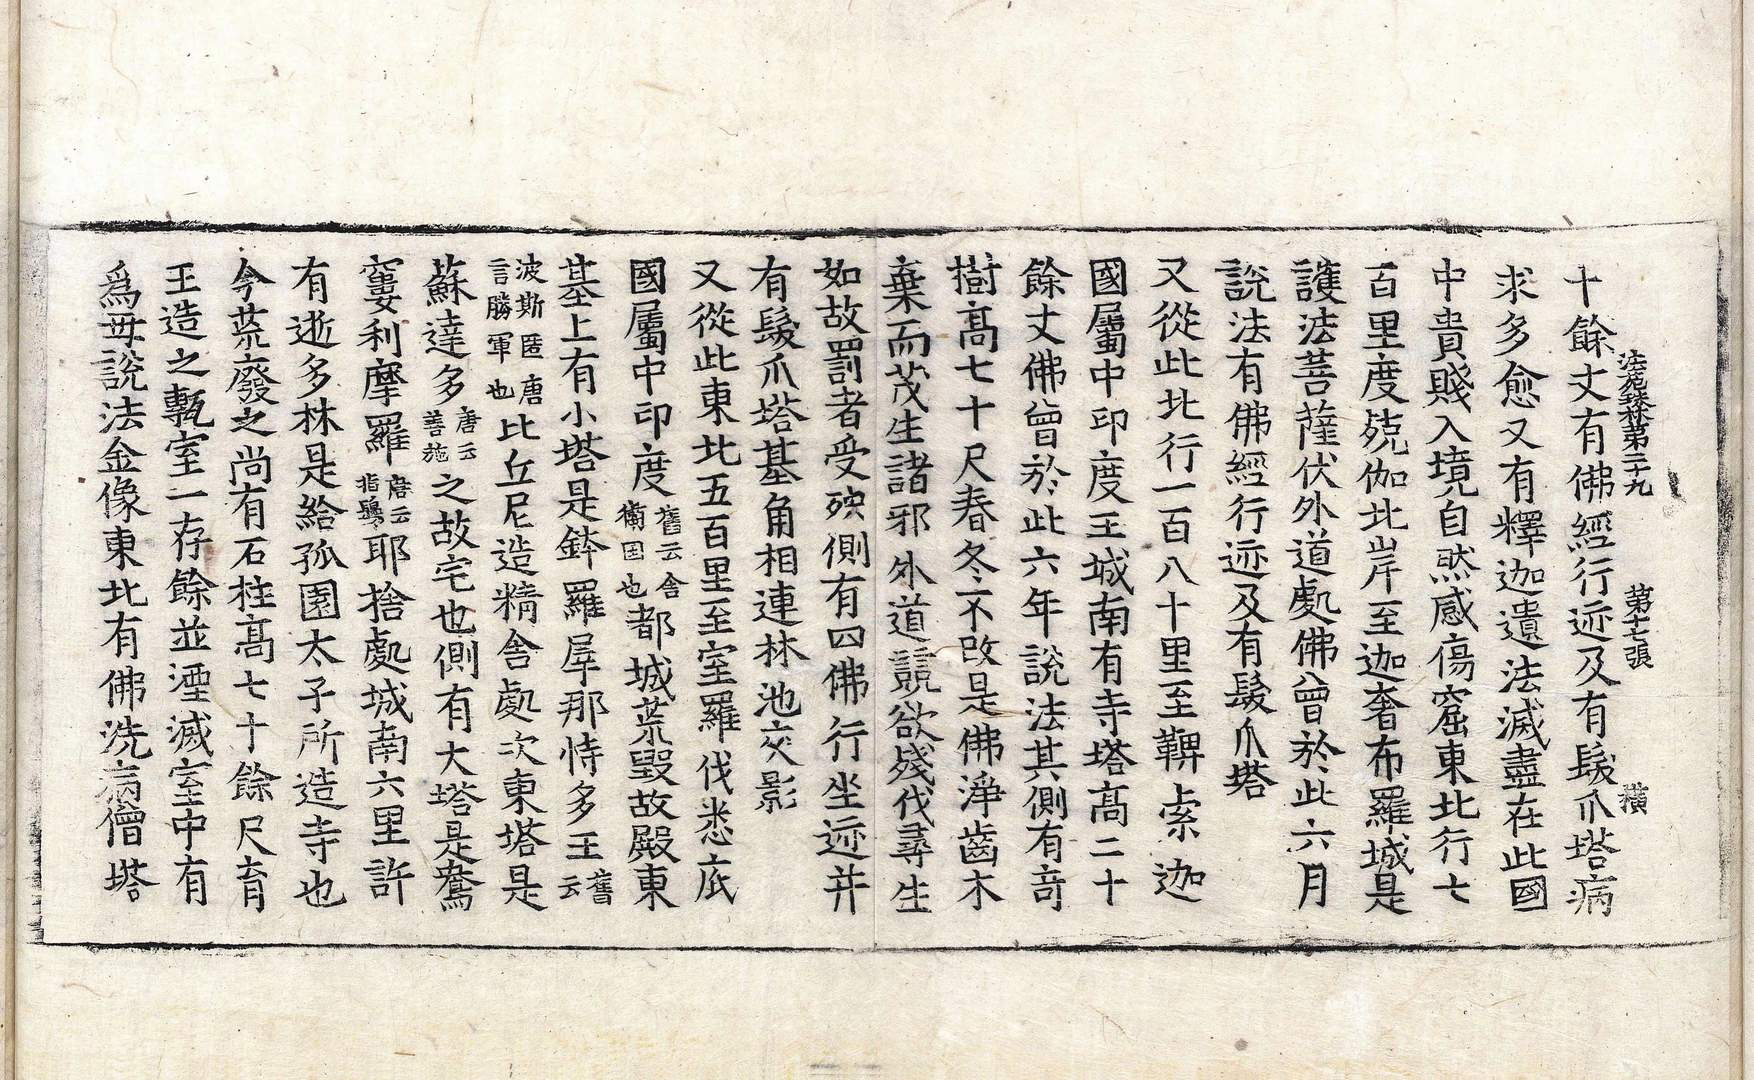 法苑珠林第二十九　第十七張　橫
十餘丈有佛經行迹及有髮爪塔病
求多愈又有釋迦遺法滅盡在此國
中貴賤入境自然感傷窟東北行七
百里度殑伽北岸至迦奢布羅城是
護法菩薩伏外道處佛曾於此六月
說法有佛經行迹及有髮爪塔
又從此北行一百八十里至鞞索迦
國屬中印度王城南有寺塔高二十
餘丈佛曾於此六年說法其側有奇
樹高七十尺春冬不改是佛淨齒木
棄而茂生諸邪外道競欲殘伐尋生
如故罰者受殃側有四佛行坐迹并
有髮爪塔基角相連林池交影
又從此東北五百里至室羅伐悉底
國屬中印度舊云舍衛國也都城荒毀故殿東
基上有小塔是鉢羅犀那恃多王舊云
波斯匿唐言勝軍也比丘尼造精舍處次東塔是
蘇達多唐云善施之故宅也側有大塔是鴦
窶利摩羅唐云指鬘耶捨處城南六里許
有逝多林是給孤園太子所造寺也
今荒廢之尚有石柱高七十餘尺育
王造之甎室一存餘並湮滅室中有
爲毋說法金像東北有佛洗病僧塔